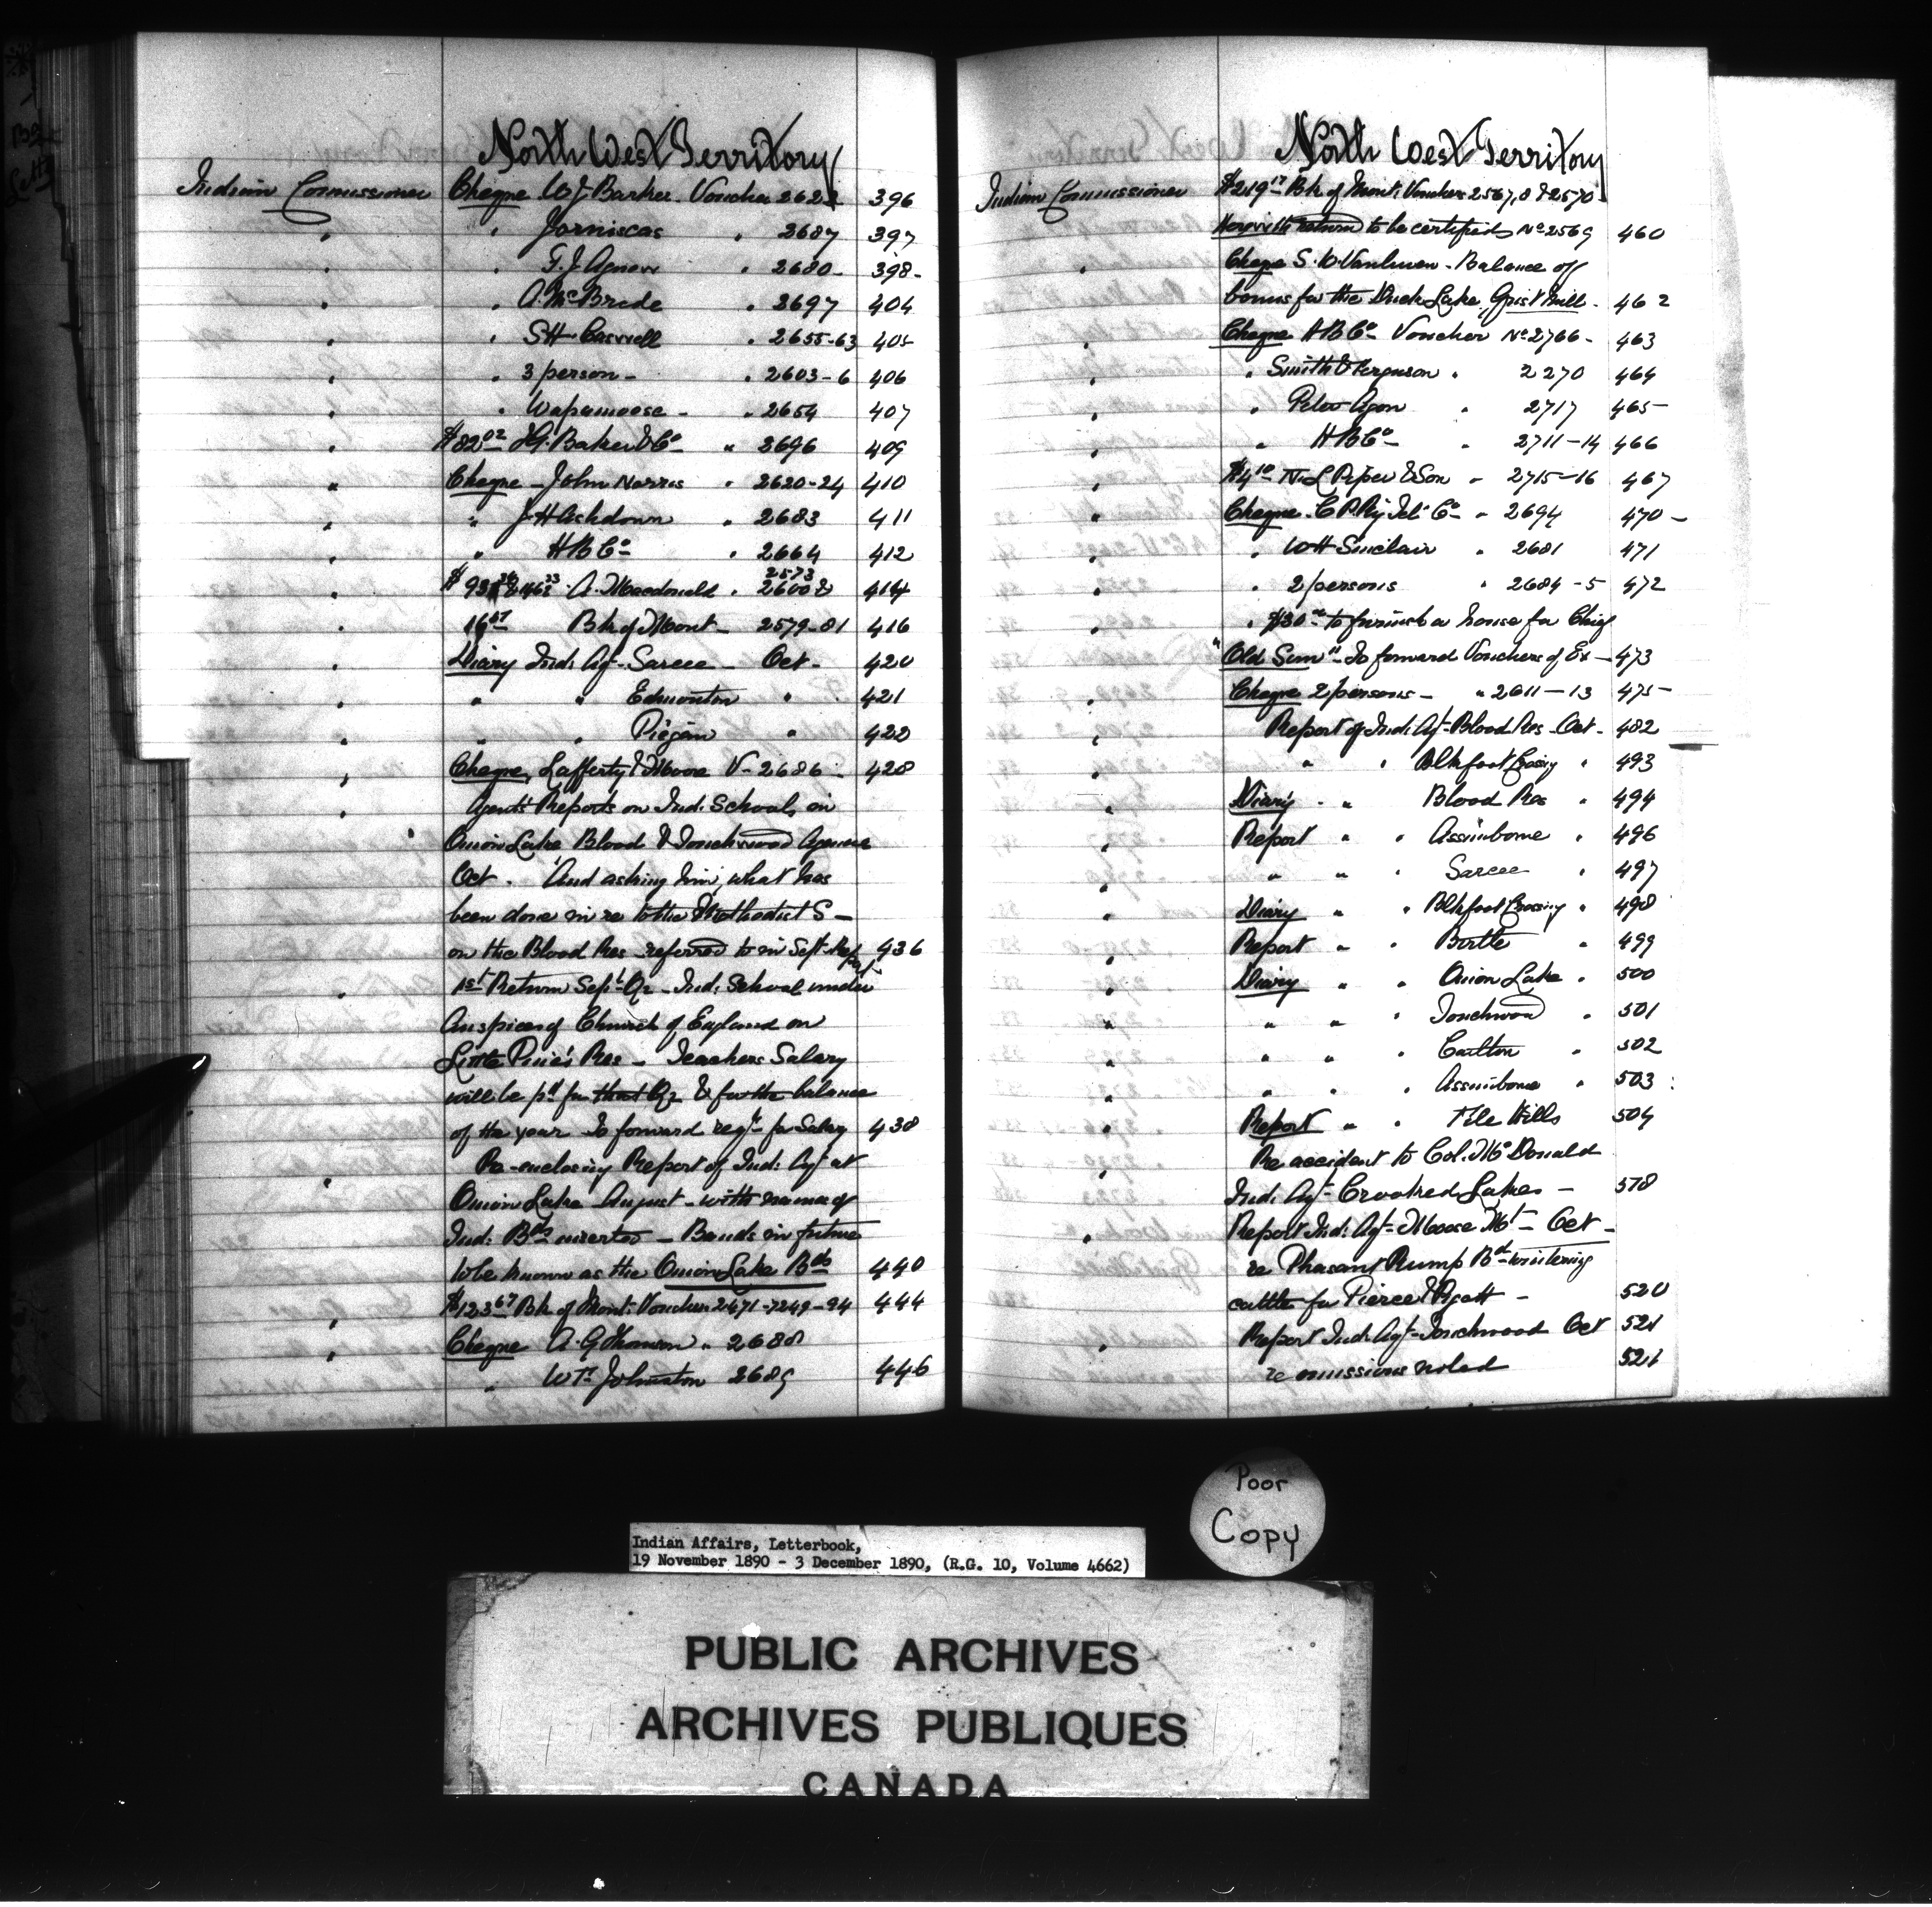 North West Territory
Indian Commissioner Cheque W J Barker Voucher 2622 396
" " Jorniscas " 2687 397
" " F. J. Agnew " 2680 - 398 -
" " A. McBride " 2697 404
" " S H Caswell " 2655-63 405
" " 3 person - " 2603-6 406
" " Wapamoose - " 2654 407
" $82 02 I. G. Baker & Co " 2696 409
" Cheque - John Norris " 2620-24 410
" " J H Ashdown " 2683 411
" " H B Co " 2664 412
2573
" A. Macdonald " 2600 414
" 16 67 Bk of Mont - 2579-81 416
" Diary Ind. Agt. Sarcee - Oct - 420
" " " Edmonton " 421
" " " Piegan " 422
" Cheque, Lafferty & Moore V- 2686 - 428
" Agents' Reports on Ind. Schools, in
Onion Lake Blood & Touchwood Agencie
Oct. And asking him, what has
been done in re to the Methodist S -
on the Blood Res referred to in Sept. Report 436
" 1st Return Sept Qr - Ind. School under
Auspices of Church of England on
Little Pine's Res - Teachers Salary
will be pd for that Qr & for the balance
of the year To forward reqn for Salary 438
" Re-enclosing Report of Ind. Agt at
Onion Lake August - with names of
Ind. Bds inserted - Bands in future
to be known as the Onion Lake Bds 440
" $123 67 Bk of Mont. Voucher 2471-7249-94 444
" Cheque A. G. Thomson " 2688
" Wm Johnston 2689 446
North West Territory
Indian Commissioner $219 17 Bk of Mont. Vouchers 2567, 8 & 2570
Herewith return to be certified No 2569 460
" Cheque S. W. - Balance of
bonus for the Duck Lake, Grist Mill - 462
" Cheque H B Co Voucher No 2766 - 463
" " Smith & Ferguson " 2270 464
" " Peter Agon " 2717 465 -
" " H B Co - " 2711-14 466
" $4 10 N. L. Piper & Son " 2715-16 467
" Cheque - C P Ry Tel. Co - " 2694 470 -
" " W H Sinclair " 2681 471
" " 2 persons " 2684-5 472
" " $30 00 to furnish a house for Chief
"Old Sun" - To forward Vouchers of Ex - 473
" Cheque 2 persons - " 2611-13 475 -
" Report of Ind. Agt - Blood Res - Oct - 482
" " " Blkfoot Crossing " 493
" Diary - " Blood Res " 494
" Report " " Assiniboine " 496
" " " " Sarcee " 497
" Diary " " Blkfoot Crossing " 498
" Report " " Birtle " 499
" Diary " " Onion Lake " 500
" " " " Touchwood " 501
" " " " Carlton " 502
" " " " Assiniboine " 503
" Report " " File Hills 504
" Re accident to Col. McDonald
Ind. Agt - Crooked Lakes - 518
" Report Ind. Agt - Moose Mt - Oct -
re Pheasant Rump Bd - wintering
cattle for Pierce & Pyott - 520
" Report Ind. Agt - Touchwood Oct 521
re omissions noted 521
Poor
Copy
Indian Affairs, Letterbook,
19 November 1890 - 3 December 1890, (R.G. 10, Volume 4662)
PUBLIC ARCHIVES
ARCHIVES PUBLIQUES
CANADA